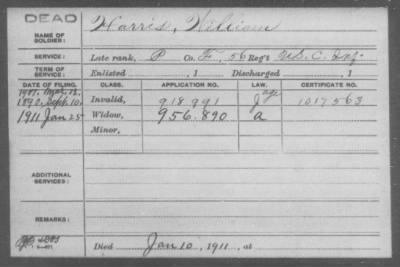 DEAD
NAME OF SOLDIER: Harris, William
SERVICE: Late rank, P Co. F, 56 Reg't U.S.C. Inf.
TERM OF SERVICE: Enlisted , 1 Discharged , 1
DATE OF FILING. CLASS. APPLICATION NO. LAW. CERTIFICATE NO.
1907. Mar. 12. age
1890, Sept. 10. Invalid, 918.991 J 1017563
1911 Jan 25 Widow, 956.890 a
Minor,
ADDITIONAL SERVICES:
REMARKS:
Died Jan 10, 1911, at